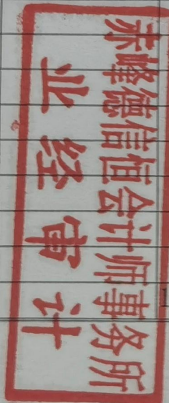 赤峰德信恒会计师事务所
业经审计